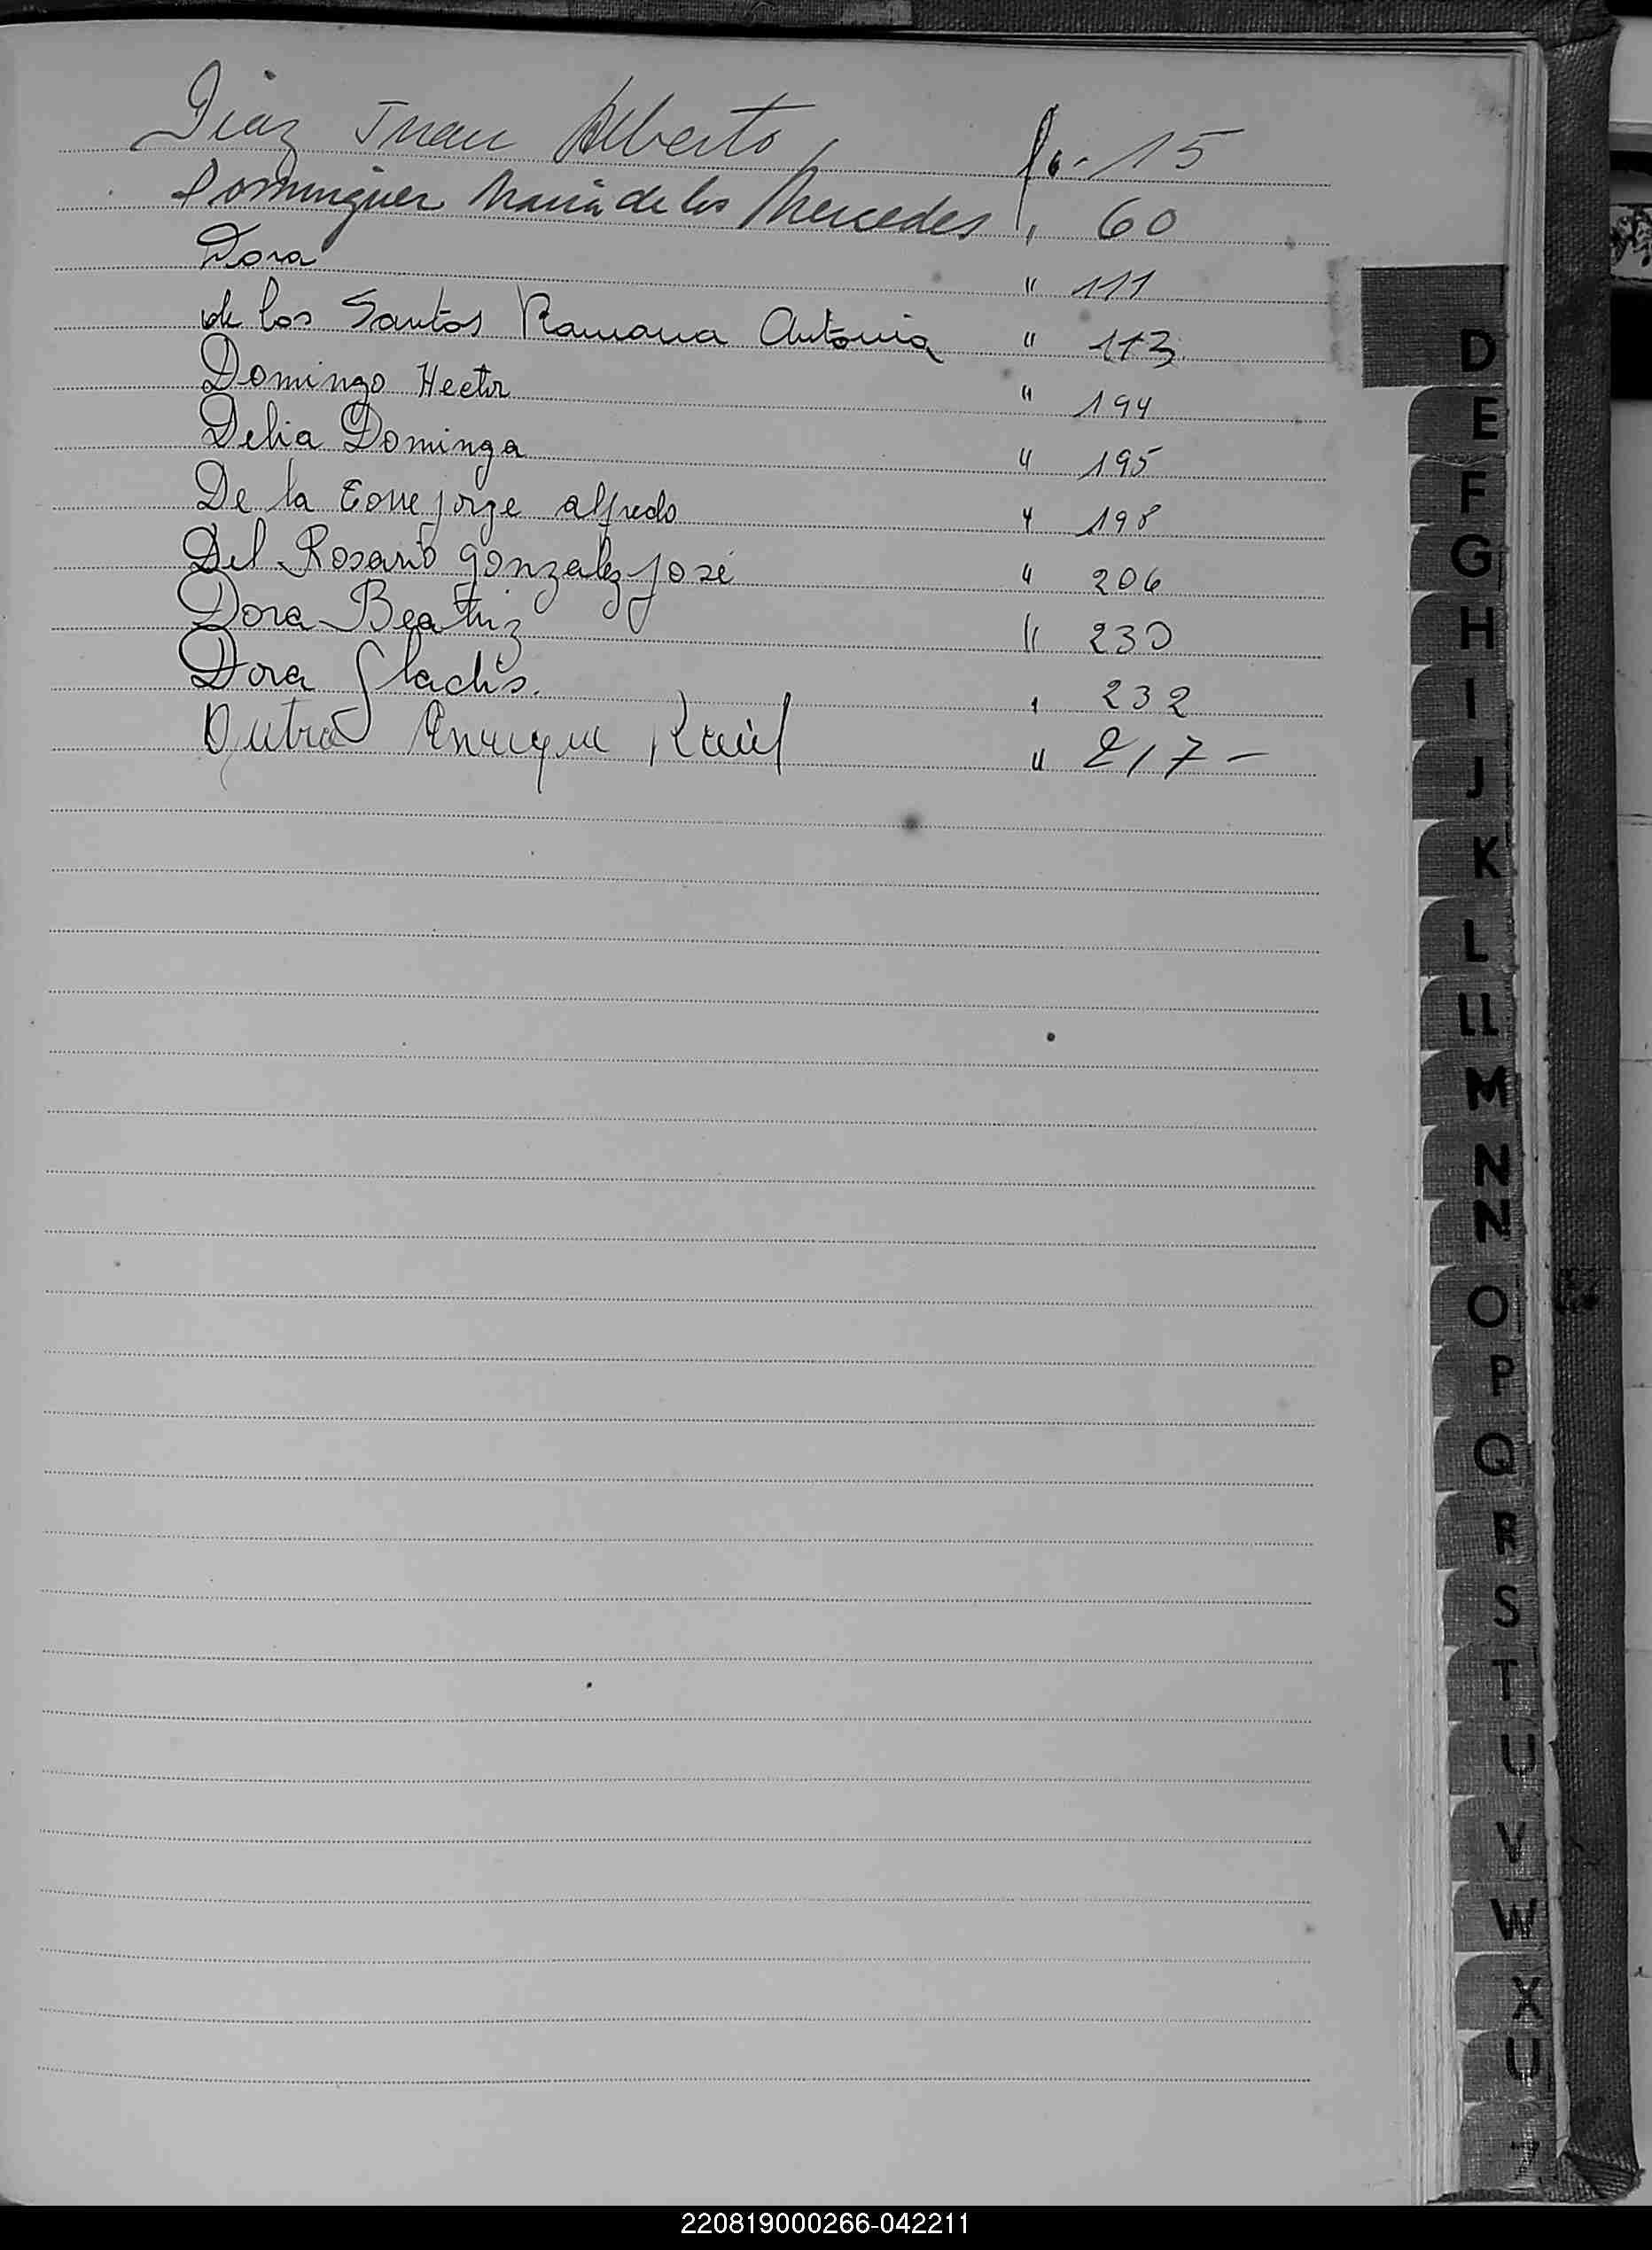 Diaz Juan Alberto fo. 15
Dominguez Maria de las Mercedes " 60
Dora " 111
de los Santos Ramona Antonia " 113
Domingo Hector " 194
Delia Dominga " 195
De la Torre Jorge Alfredo " 198
Del Rosario Gonzalez José " 206
Dora Beatriz " 230
Dora Gladis. " 232
Dutra Enrique Raúl " 217-
D
E
F
G
H
I
J
K
L
LL
M
N
Ñ
O
P
Q
R
S
T
U
V
W
X
Z
220819000266-042211